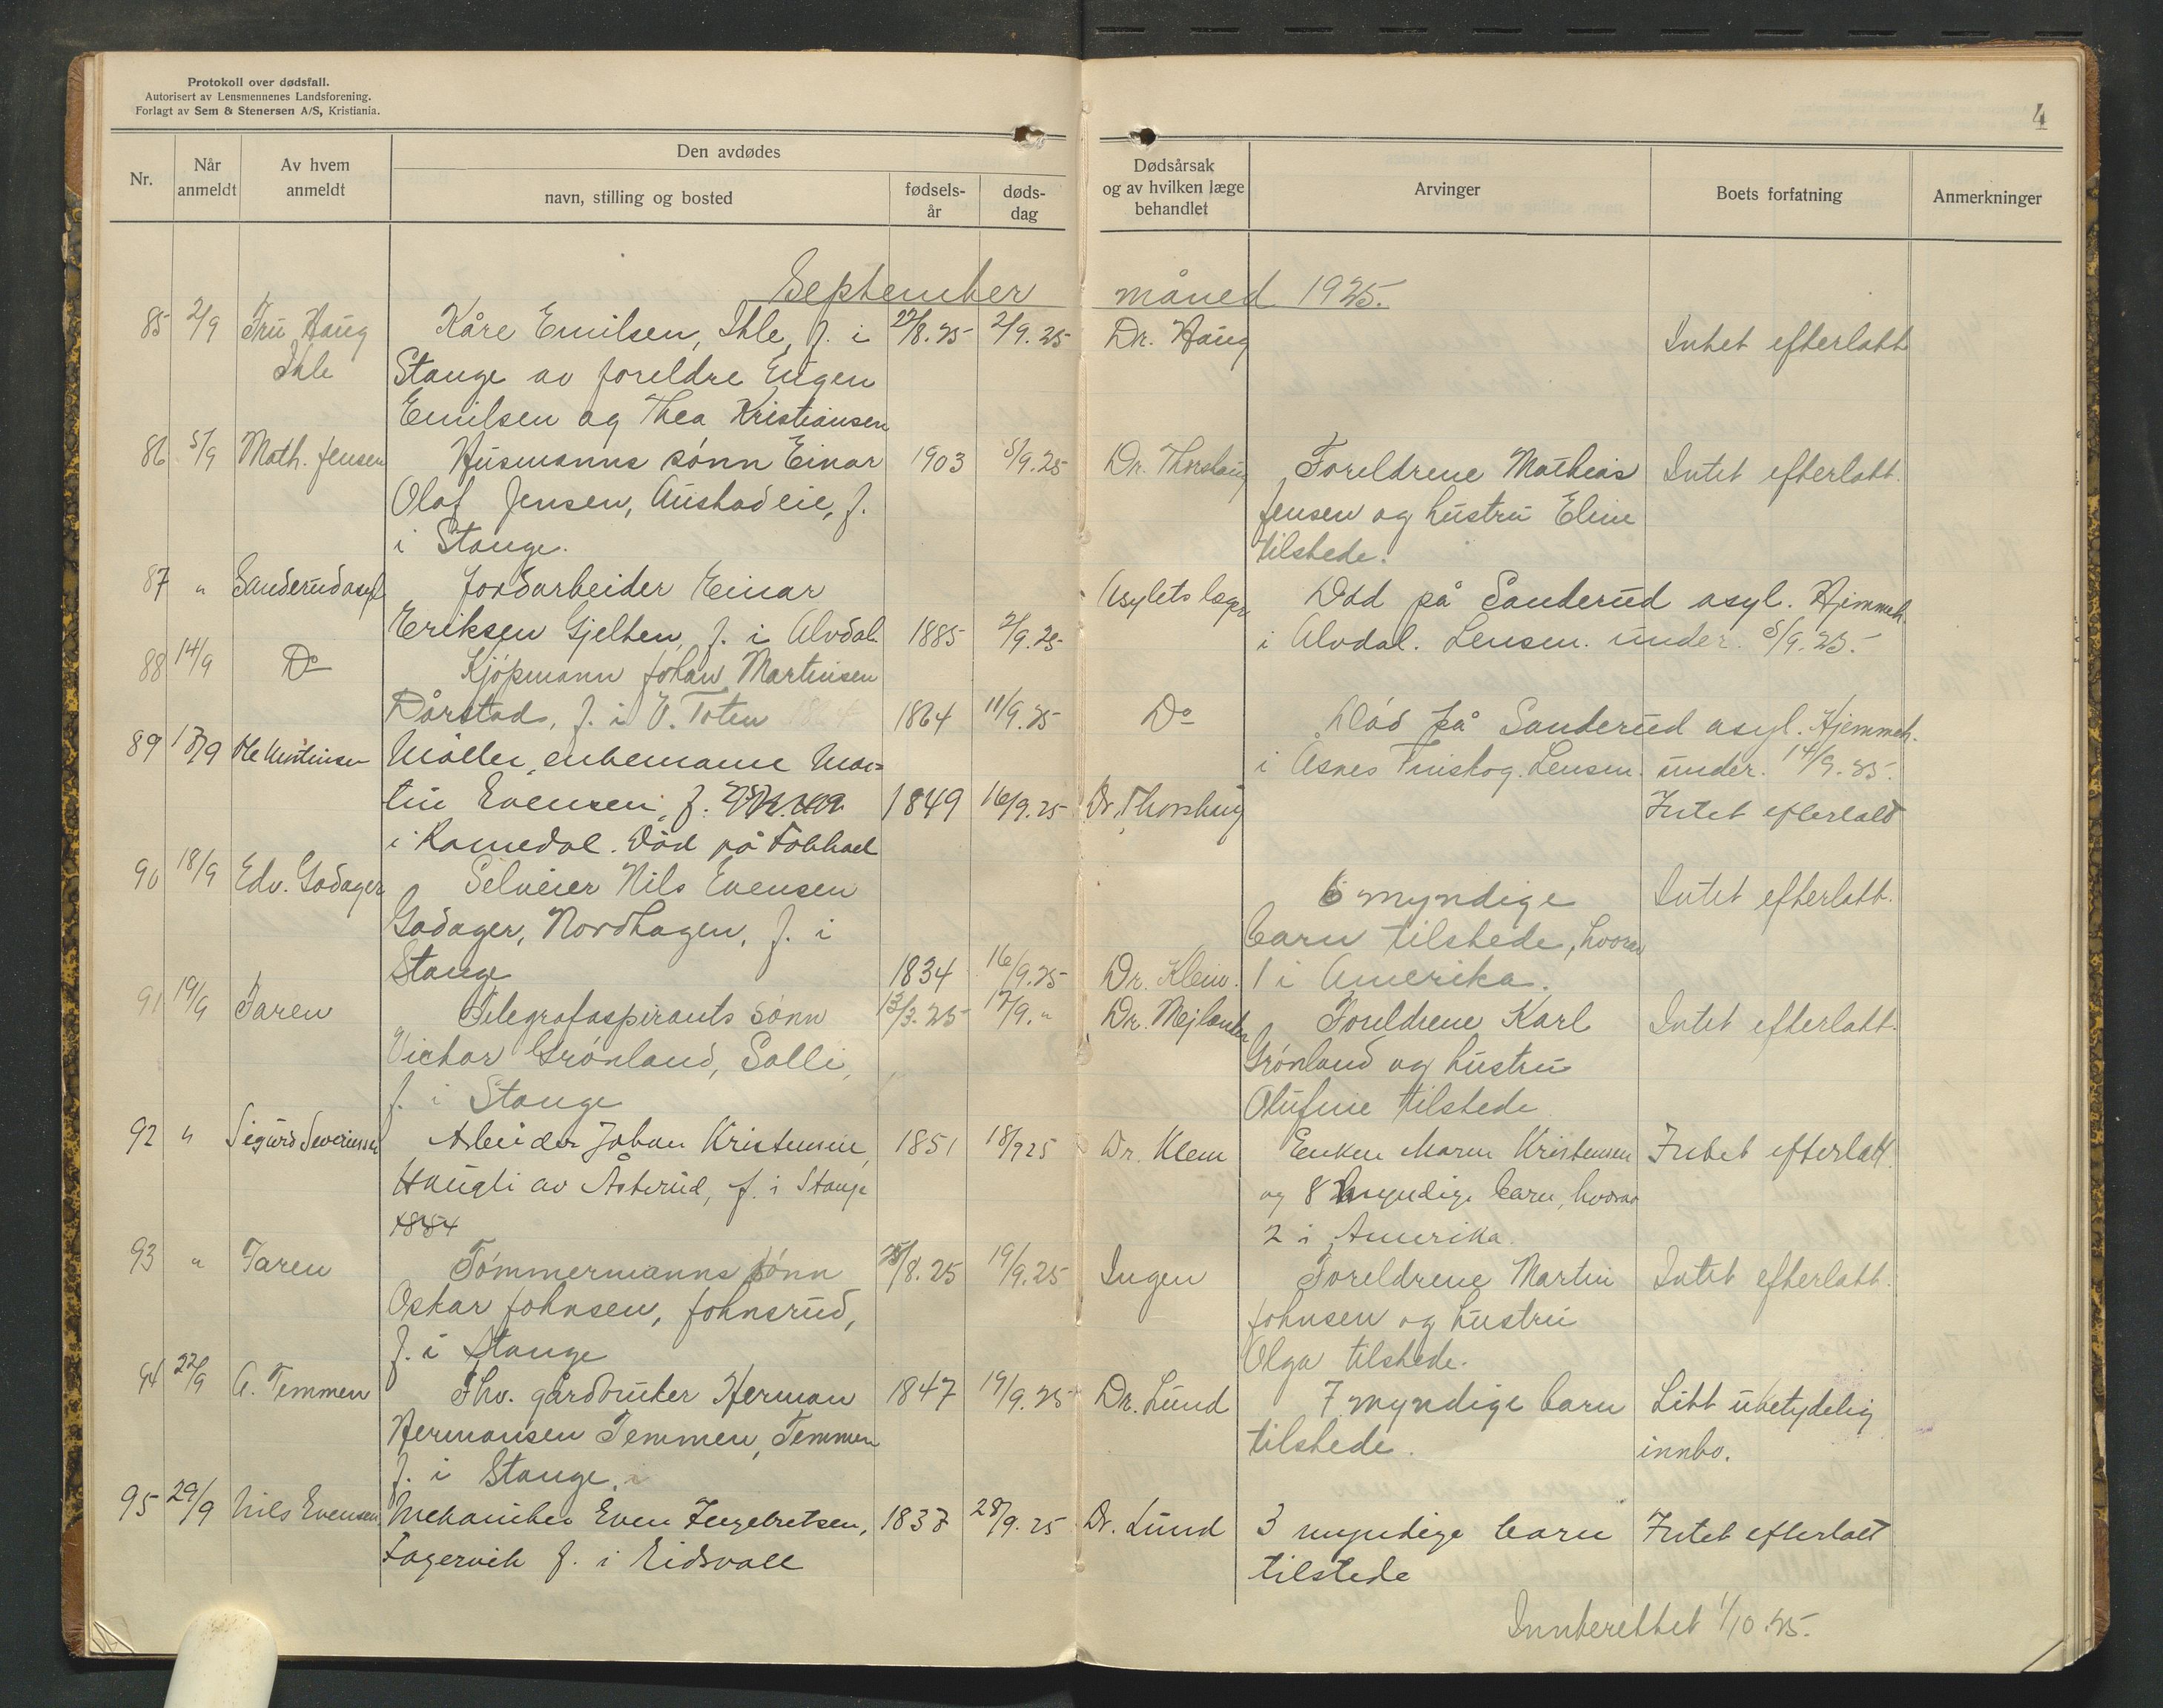 Protokoll over dødsfall.
Autorisert av Lensmennenes Landsforening.
Forlagt av Sem & Stenersen A/S, Kristiania.
4
Nr.
Når anmeldt
Av hvem anmeldt
Den avdødes
navn, stilling og bosted
fødsels-år
døds-dag
Dødsårsak og av hvilken læge behandlet
Arvinger
Boets forfatning
Anmerkninger
September måned 1925.
85 2/9 Fru Haug Kåre Emilsen, Ihle, f. i 22/8.25 2/9.25 Dr. Haug Intet efterlatt
Ihle Stange av foreldre Eugen
Emilsen og Thea Kristiansen
86 5/9 Math. Jensen Husmanns sønn Einar 1903 5/9.25 Dr. Thorshaug Foreldrene Mathias Intet efterlatt.
Olaf Jensen, Austad eie, f. Jensen og hustru Eline
i Stange. tilstede.
87 " Sanderud asyl Jordarbeider Einar Asylets læge Død på Sanderud asyl. Hjemmeh.
Eriksen Gjelten, f. i Alvdal 1885 2/9.25 i Alvdal. Lensm. under. 5/9.25.
88 14/9 Do Kjøpmann Johan Martinsen
Dårstad, f. i V. Toten 1864 11/9.25 Do Død på Sanderud asyl. Hjemmeh.
89 17/9 Ole Martinsen Møller, enkemann Mar= i Åsnes Finskog. Lensm. under. 14/9.25.
tin Evensen, f. 1849 16/9.25 Dr. Thorshaug Intet efterlatt
i Romedal. Død på
90 18/9 Edv. Godager Selveier Nils Evensen 6 myndige Intet efterlatt.
Godager, Nordhagen, f. i barn tilstede, hvorav
Stange 1834 16/9.25 Dr. Klem. 1 i Amerika.
91 19/9 Faren Telegrafaspirants sønn 13/3.25 17/9. " Dr. Mejlænder Foreldrene Karl Intet efterlatt.
Victor Grønland, Solli, Grønland og hustru
f. i Stange Olufine tilstede
92 " Sigurd Severinsen Arbeider Johan Kristensen, 1851 18/9 25 Dr. Klem Enken Maren Kristensen Intet efterlatt.
Haugli av Åsterud, f. i Stange og 8 myndige barn, hvorav
1854 2 i Amerika.
93 " Faren Tømmermanns sønn 25/8.25 19/9.25 Ingen Foreldrene Martin Intet efterlatt.
Oskar Johnsen, Johnsrud, Johnsen og hustru
f. i Stange Olga tilstede.
94 22/9 A. Temmen Fhv. gårdbruker Herman 1847 19/9.25 Dr. Lund 7 myndige barn Litt ubetydelig
Hermansen Temmen, Temmen tilstede. innbo.
f. i Stange.
95 29/9 Nils Evensen Mekaniker Even Ingebretsen, 1837 28/9.25 Dr. Lund 3 myndige barn Intet efterlatt
Fagervik f. i Eidsvoll tilstede
Innberettet 1/10.25.